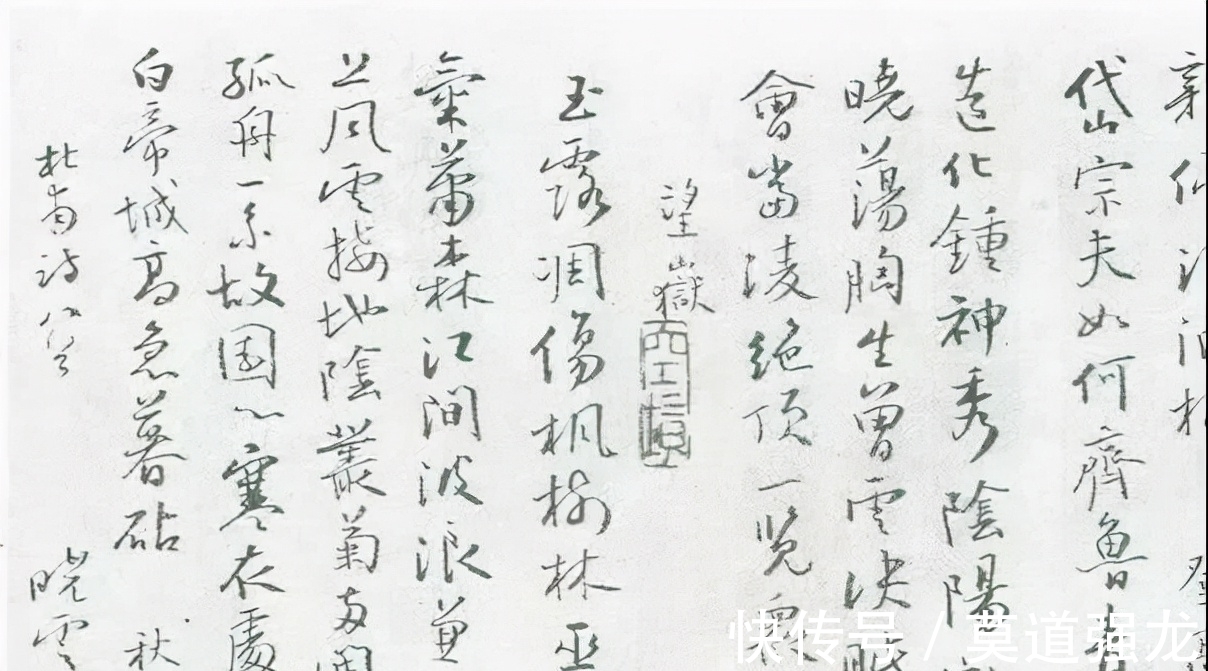 岱宗夫如何齊魯青
造化鍾神秀陰陽
曉蕩胸生曽雲決眥
會當淩絕頂一览衆
望嶽
玉露凋傷楓樹林巫
氣蕭森江間波浪兼
上風雲接地陰叢菊兩開
孤舟一系故園心寒衣處
白帝城高急暮砧 秋
杜甫诗 曉雲
快传号 / 莫道强龙